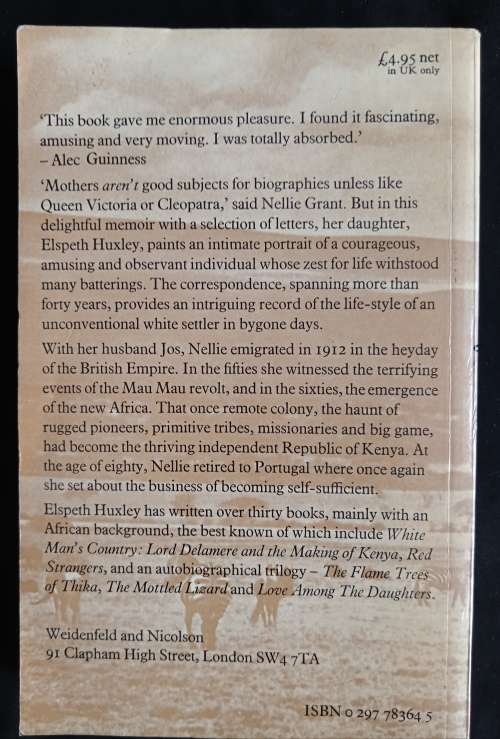 £4.95 net
in UK only
‘This book gave me enormous pleasure. I found it fascinating,
amusing and very moving. I was totally absorbed.’
– Alec Guinness
‘Mothers aren’t good subjects for biographies unless like
Queen Victoria or Cleopatra,’ said Nellie Grant. But in this
delightful memoir with a selection of letters, her daughter,
Elspeth Huxley, paints an intimate portrait of a courageous,
amusing and observant individual whose zest for life withstood
many batterings. The correspondence, spanning more than
forty years, provides an intriguing record of the life-style of an
unconventional white settler in bygone days.
With her husband Jos, Nellie emigrated in 1912 in the heyday
of the British Empire. In the fifties she witnessed the terrifying
events of the Mau Mau revolt, and in the sixties, the emergence
of the new Africa. That once remote colony, the haunt of
rugged pioneers, primitive tribes, missionaries and big game,
had become the thriving independent Republic of Kenya. At
the age of eighty, Nellie retired to Portugal where once again
she set about the business of becoming self-sufficient.
Elspeth Huxley has written over thirty books, mainly with an
African background, the best known of which include White
Man’s Country: Lord Delamere and the Making of Kenya, Red
Strangers, and an autobiographical trilogy – The Flame Trees
of Thika, The Mottled Lizard and Love Among The Daughters.
Weidenfeld and Nicolson
91 Clapham High Street, London SW4 7TA
ISBN 0 297 78364 5